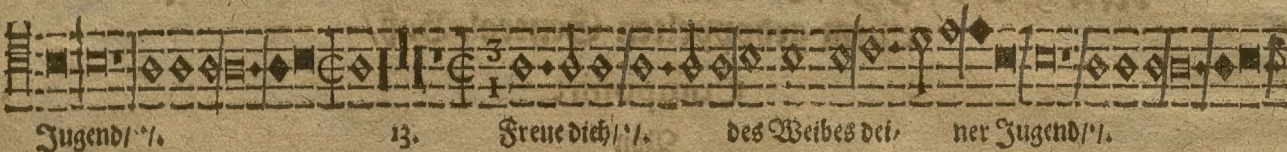 Jugend/ ij. 13. Freue dich/ ij. des Weibes dei- ner Jugend/ ij.